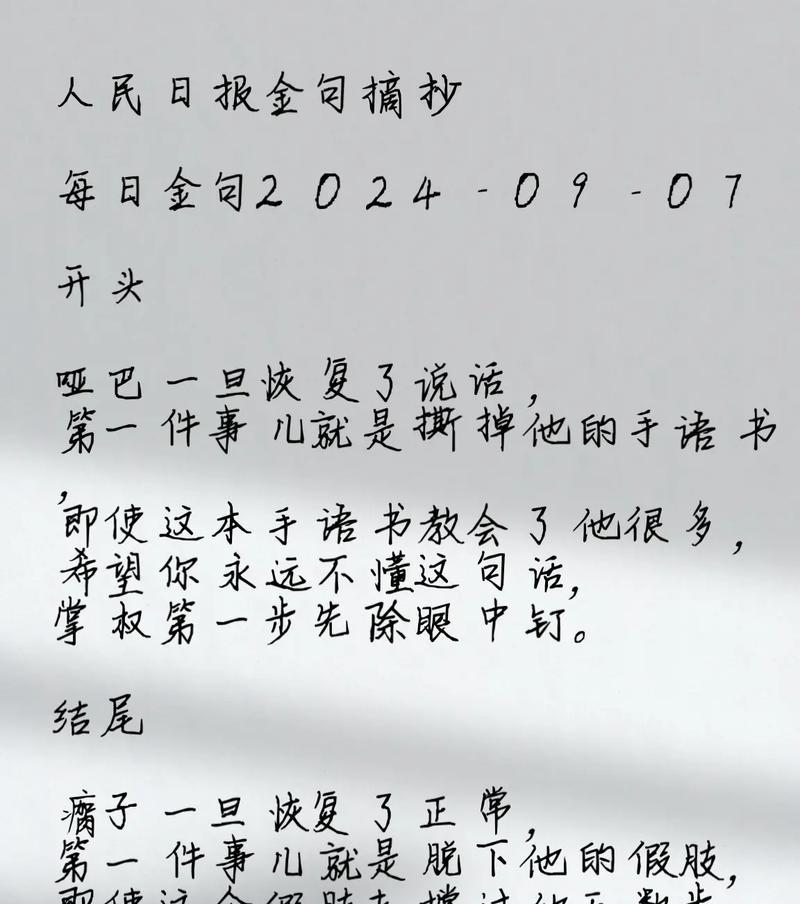 人民日报金句摘抄
每日金句2024-09-07
开头
哑巴一旦恢复了说话，
第一件事儿就是撕掉他的手语书
，
即使这本手语书教会了他很多，
希望你永远不懂这句话，
掌权第一步先除眼中钉。
结尾
瘸子一旦恢复了正常，
第一件事儿就是脱下他的假肢，
即使这个假肢支撑过他无数步